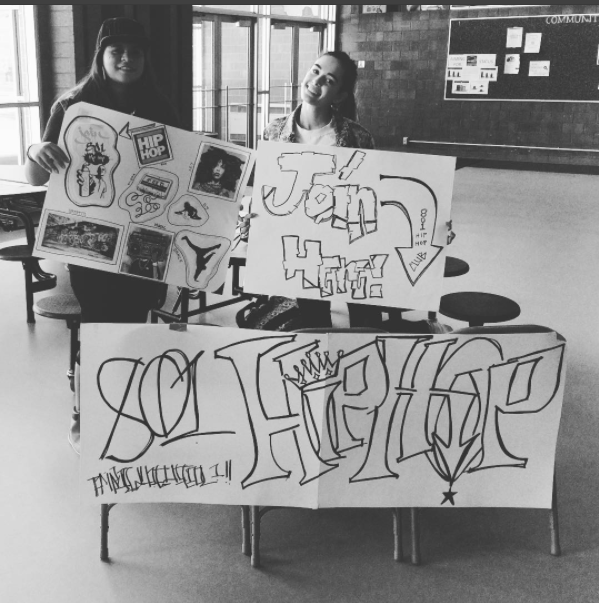 COMMUNIT
HIP
HOP
Join
Here!
801
HIP
HOP
CLUB
801 HIPHOP